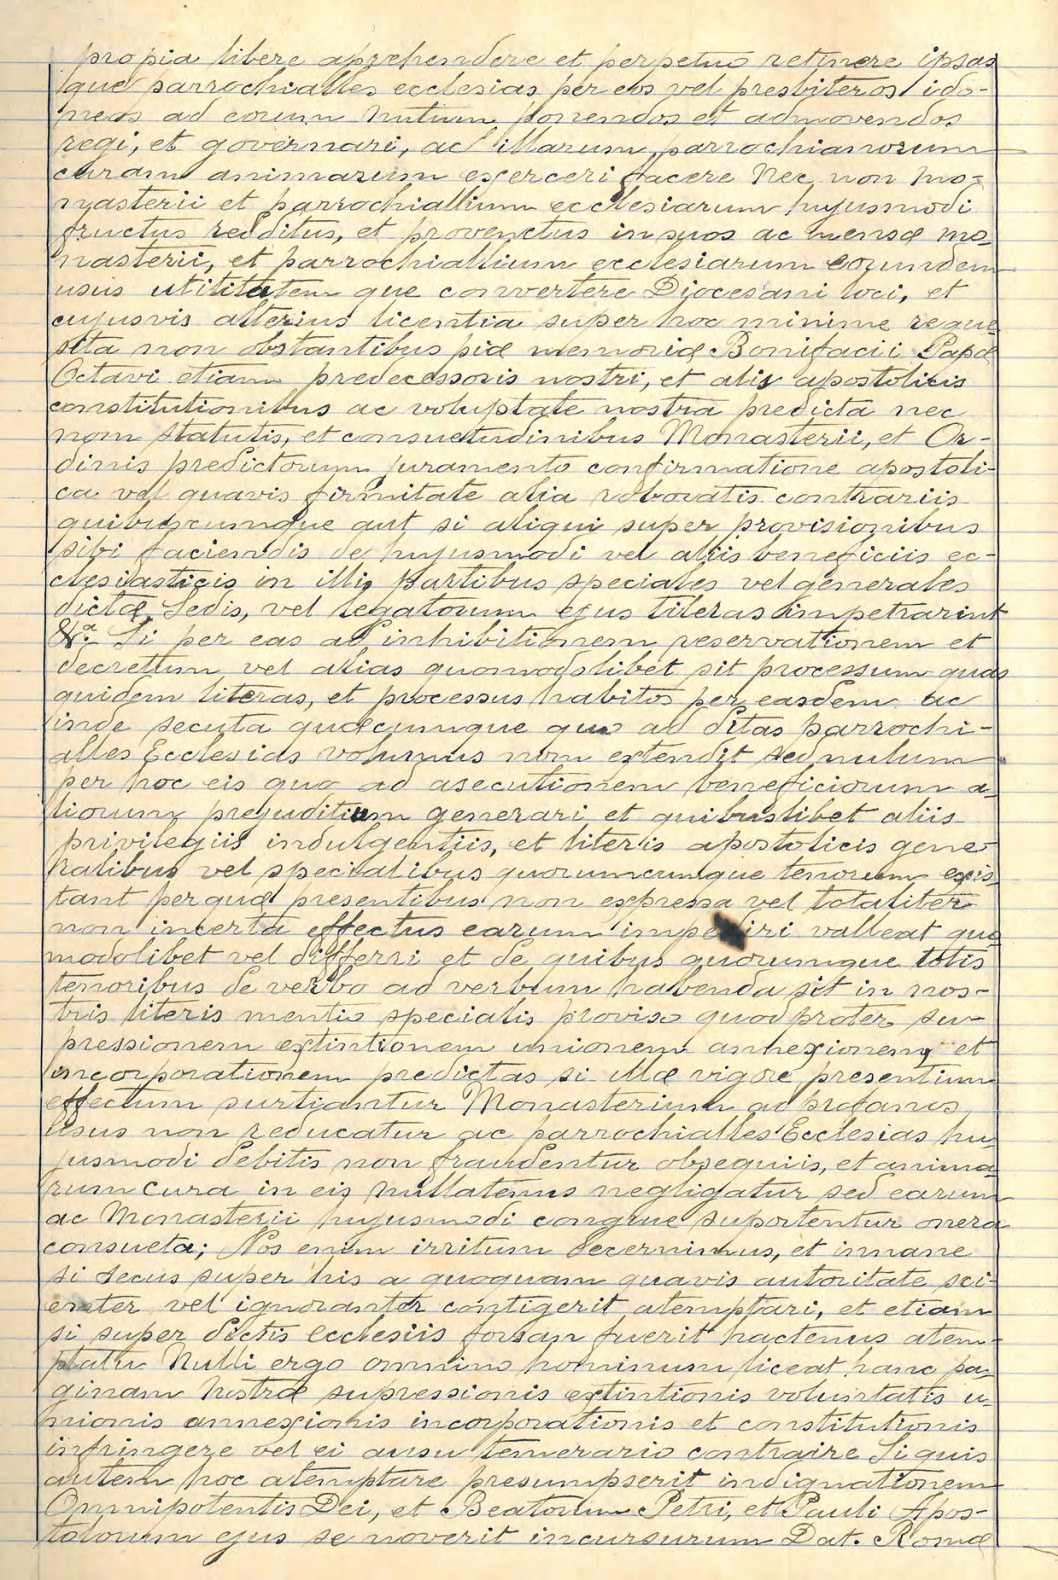 propia libere aprehendere et perpetuo retinere ipsas
que parrochialles ecclesias per eos vel presbiteros ido-
neos ad eorum nutum ponendos et admovendos
regi, et governari, ac illarum parrochianorum
curam animarum exerceri facere Nec non mo-
nasterii et parrochiallium ecclesiarum hujusmodi
fructus redditus, et proventus in suos ac mensæ mo-
nasterii, et parrochiallium ecclesiarum eorundem
usus utilitatem que convertere Diocesani loci, et
cujusvis alterius licentia super hoc minime reque
sita non obstantibus piæ memoriæ Bonifacii Papæ
Octavi etiam predecessoris nostri, et aliis apostolicis
constitutionibus ac voluptate nostra predicta nec
non statutis, et consuetudinibus Monasterii, et Or-
dinis predictorum juramento confirmatione apostoli-
ca vel quavis firmitate alia roboratis contrariis
quibuscumque aut si aliqui super provisionibus
sibi faciendis de hujusmodi vel aliis beneficiis ec-
clesiasticis in illis partibus speciales vel generales
dictæ Sedis, vel legatorum ejus literas impetrarint
Si per eas ad inhibitionem reservationem et
decretum vel alias quomodolibet sit processum quas
quidem literas, et processus habitos per easdem ac
inde secuta quæcumque quo ad ditas parrochi-
alles Ecclesias volumus non extendit sed nulum
per hoc eis quo ad asecutionem beneficiorum a-
liorum prejuditium generari et quibuslibet aliis
privilegiis indulgentiis, et literis apostolicis gene-
ralibus vel specialibus quorumcumque tenorum exis
tant per quæ presentibus non expressa vel totaliter
non incerta effectus earum impediri valleat quo
modolibet vel differri et de quibus quorumque totis
tenoribus de verbo ad verbum habenda sit in nos-
tris literis mentio specialis proviso quod proter su-
pressionem extintionem unionem annexionem et
incorporationem predictas si illæ vigore presentium
effectum surtiantur Monasterium ad profanos
usus non reducatur ac parrochialles Ecclesias hu
jusmodi debitis non fraudentur obsequiis, et anima
rum cura in eis nullatenus negligatur sed earum
ac Monasterii hujusmodi congrue suportentur onera
consueta; Nos enim irritum decernimus, et innane
si secus super his a quoquam quavis autoritate sci-
enter vel ignoranter contigerit atemptari, et etiam
si super dictis ecclesiis forsan fuerit hactenus atem-
ptatu Nulli ergo omnino hominum liceat hanc pa-
ginam nostræ supressionis extintionis voluntatis u-
nionis annexionis incorporationis et constitutionis
infringere vel ei ausu temerario contraire Si quis
autem hoc atemptare presumpserit indignationem
Omnipotentis Dei, et Beatorum Petri, et Pauli Apos-
tolorum ejus se noverit incursurum Dat. Romæ